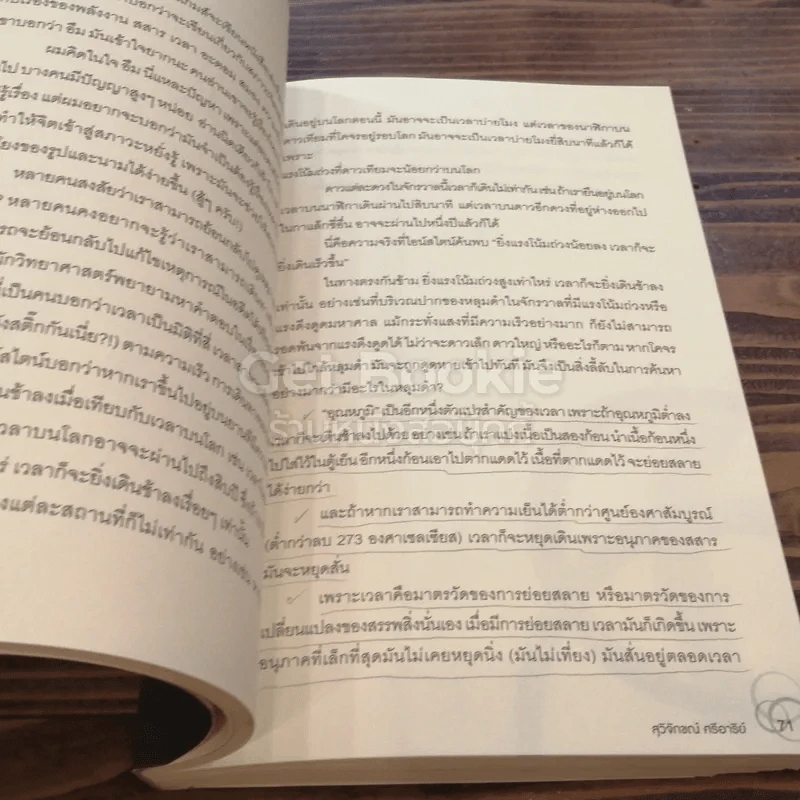 ผมคิดในใจ อืม นี่แหละปัญหา
ไป บางคนมีปัญญาสูงๆ หน่อย อ่านนิดเดียวก็
รู้เรื่อง แต่ผมอยากจะบอกว่ามันจำเป็นต้อง
ทำให้จิตเข้าสู่สภาวะหยั่งรู้ เพราะมันจะ
ของรูปและนามได้ง่ายขึ้น (สู้ๆ ครับ!)
หลายคนสงสัยว่าเราสามารถย้อนกลับไป
หลายคนคงอยากจะรู้ว่าเราสามารถ
จะย้อนกลับไปแก้ไขเหตุการณ์ในอดีตได้
นักวิทยาศาสตร์พยายามหาคำตอบ
ที่เป็นคนบอกว่าเวลาเป็นมิติที่สี่ เวลา
สติ๊กกันเนี่ย?!) ตามความเร็ว การเดิน
สไตน์บอกว่าหากเราขึ้นไปอยู่บน
ช้าลงเมื่อเทียบกับเวลาบนโลก เช่น เวลา
เวลาบนโลกอาจจะผ่านไปถึงสิบปี
เวลาก็จะยิ่งเดินช้าลงเรื่อยๆ เท่านั้น
แต่ละสถานที่ก็ไม่เท่ากัน อย่างเช่น
เดินอยู่บนโลกตอนนี้ มันอาจจะเป็นเวลาบ่ายโมง แต่เวลาของนาฬิกาบน
ดาวเทียมที่โคจรอยู่รอบโลก มันอาจจะเป็นเวลาบ่ายโมงยี่สิบนาทีแล้วก็ได้
เพราะ
แรงโน้มถ่วงที่ดาวเทียมจะน้อยกว่าบนโลก
ดาวแต่ละดวงในจักรวาลนี้เวลาก็เดินไม่เท่ากัน เช่น ถ้าเรายืนอยู่บนโลก
เวลาบนนาฬิกาเดินผ่านไปสิบนาที แต่เวลาบนดาวอีกดวงที่อยู่ห่างออกไป
ในกาแล็กซี่อื่น อาจจะผ่านไปหนึ่งปีแล้วก็ได้
นี่คือความจริงที่ไอน์สไตน์ค้นพบ “ยิ่งแรงโน้มถ่วงน้อยลง เวลาก็จะ
ยิ่งเดินเร็วขึ้น”
ในทางตรงกันข้าม ยิ่งแรงโน้มถ่วงสูงเท่าไหร่ เวลาก็จะยิ่งเดินช้าลง
เท่านั้น อย่างเช่นที่บริเวณปากของหลุมดำในจักรวาลที่มีแรงโน้มถ่วงหรือ
แรงดึงดูดมหาศาล แม้กระทั่งแสงที่มีความเร็วอย่างมาก ก็ยังไม่สามารถ
รอดพ้นจากแรงดึงดูดได้ ไม่ว่าจะดาวเล็ก ดาวใหญ่ หรืออะไรก็ตาม หากโคจร
เข้าไปใกล้หลุมดำ มันจะถูกดูดหายเข้าไปทันที มันจึงเป็นสิ่งลี้ลับในการค้นหา
อย่างมากว่ามีอะไรในหลุมดำ?
“อุณหภูมิ” เป็นอีกหนึ่งตัวแปรสำคัญของเวลา เพราะถ้าอุณหภูมิต่ำลง
เวลาก็จะเดินช้าลงไปด้วย อย่างเช่น ถ้าเราแบ่งเนื้อเป็นสองก้อน นำเนื้อก้อนหนึ่ง
ไปใส่ไว้ในตู้เย็น อีกหนึ่งก้อนเอาไปตากแดดไว้ เนื้อที่ตากแดดไว้ จะย่อยสลาย
ได้ง่ายกว่า
และถ้าหากเราสามารถทำความเย็นได้ต่ำกว่าศูนย์องศาสัมบูรณ์
(ต่ำกว่าลบ 273 องศาเซลเซียส) เวลาก็จะหยุดเดินเพราะอนุภาคของสสาร
มันจะหยุดสั่น
เพราะเวลาคือมาตรวัดของการย่อยสลาย หรือมาตรวัดของการ
เปลี่ยนแปลงของสรรพสิ่งนั่นเอง เมื่อมีการย่อยสลาย เวลามันก็เกิดขึ้น เพราะ
อนุภาคที่เล็กที่สุดมันไม่เคยหยุดนิ่ง (มันไม่เที่ยง) มันสั่นอยู่ตลอดเวลา
สุวิจักขณ์ ศรีอารีย์ 71
Get Bookie
ร้านหนังสือบุ๊คกี้